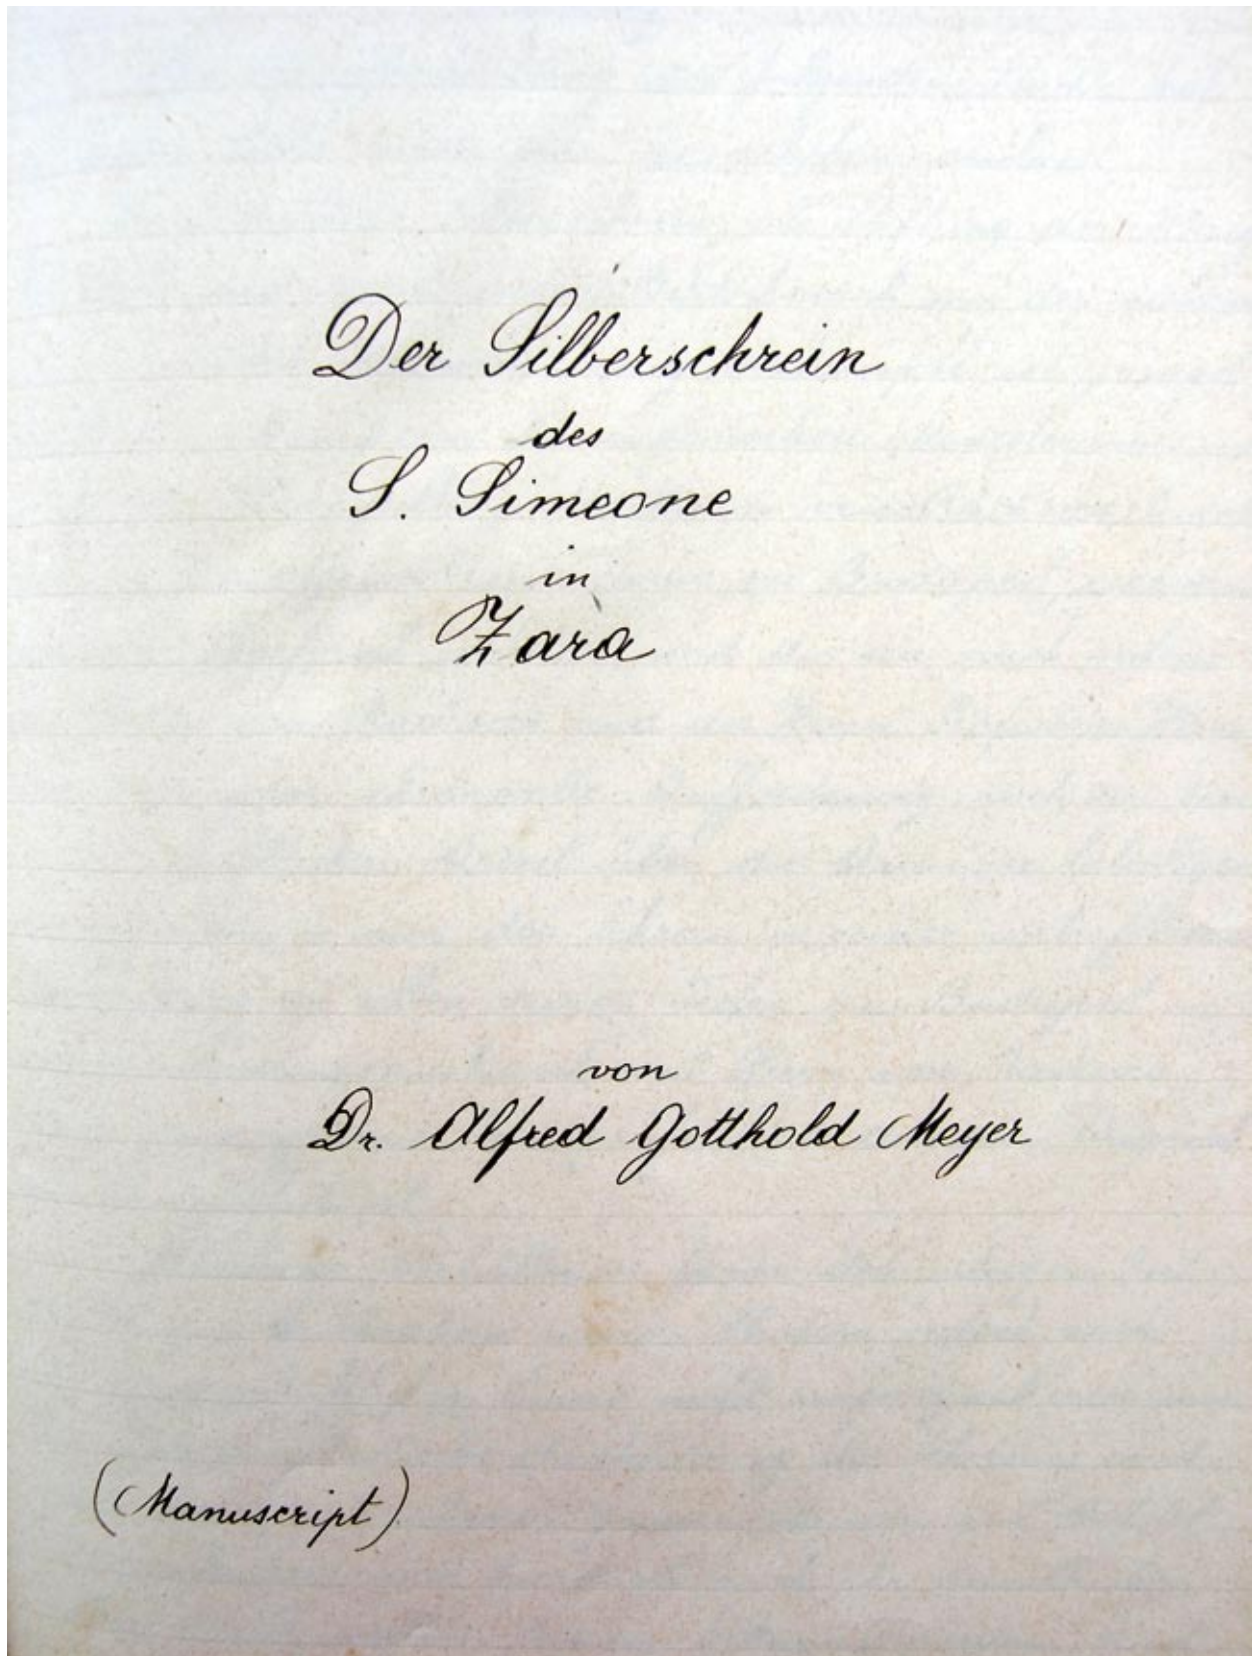 Der Silberschrein
des
S. Simeone
in
Zara
von
Dr. Alfred Gotthold Meyer
(Manuscript)